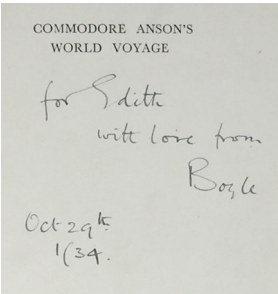 COMMODORE ANSON'S
WORLD VOYAGE
for Edith
with love from
Boyle
Oct 29th
1/34.